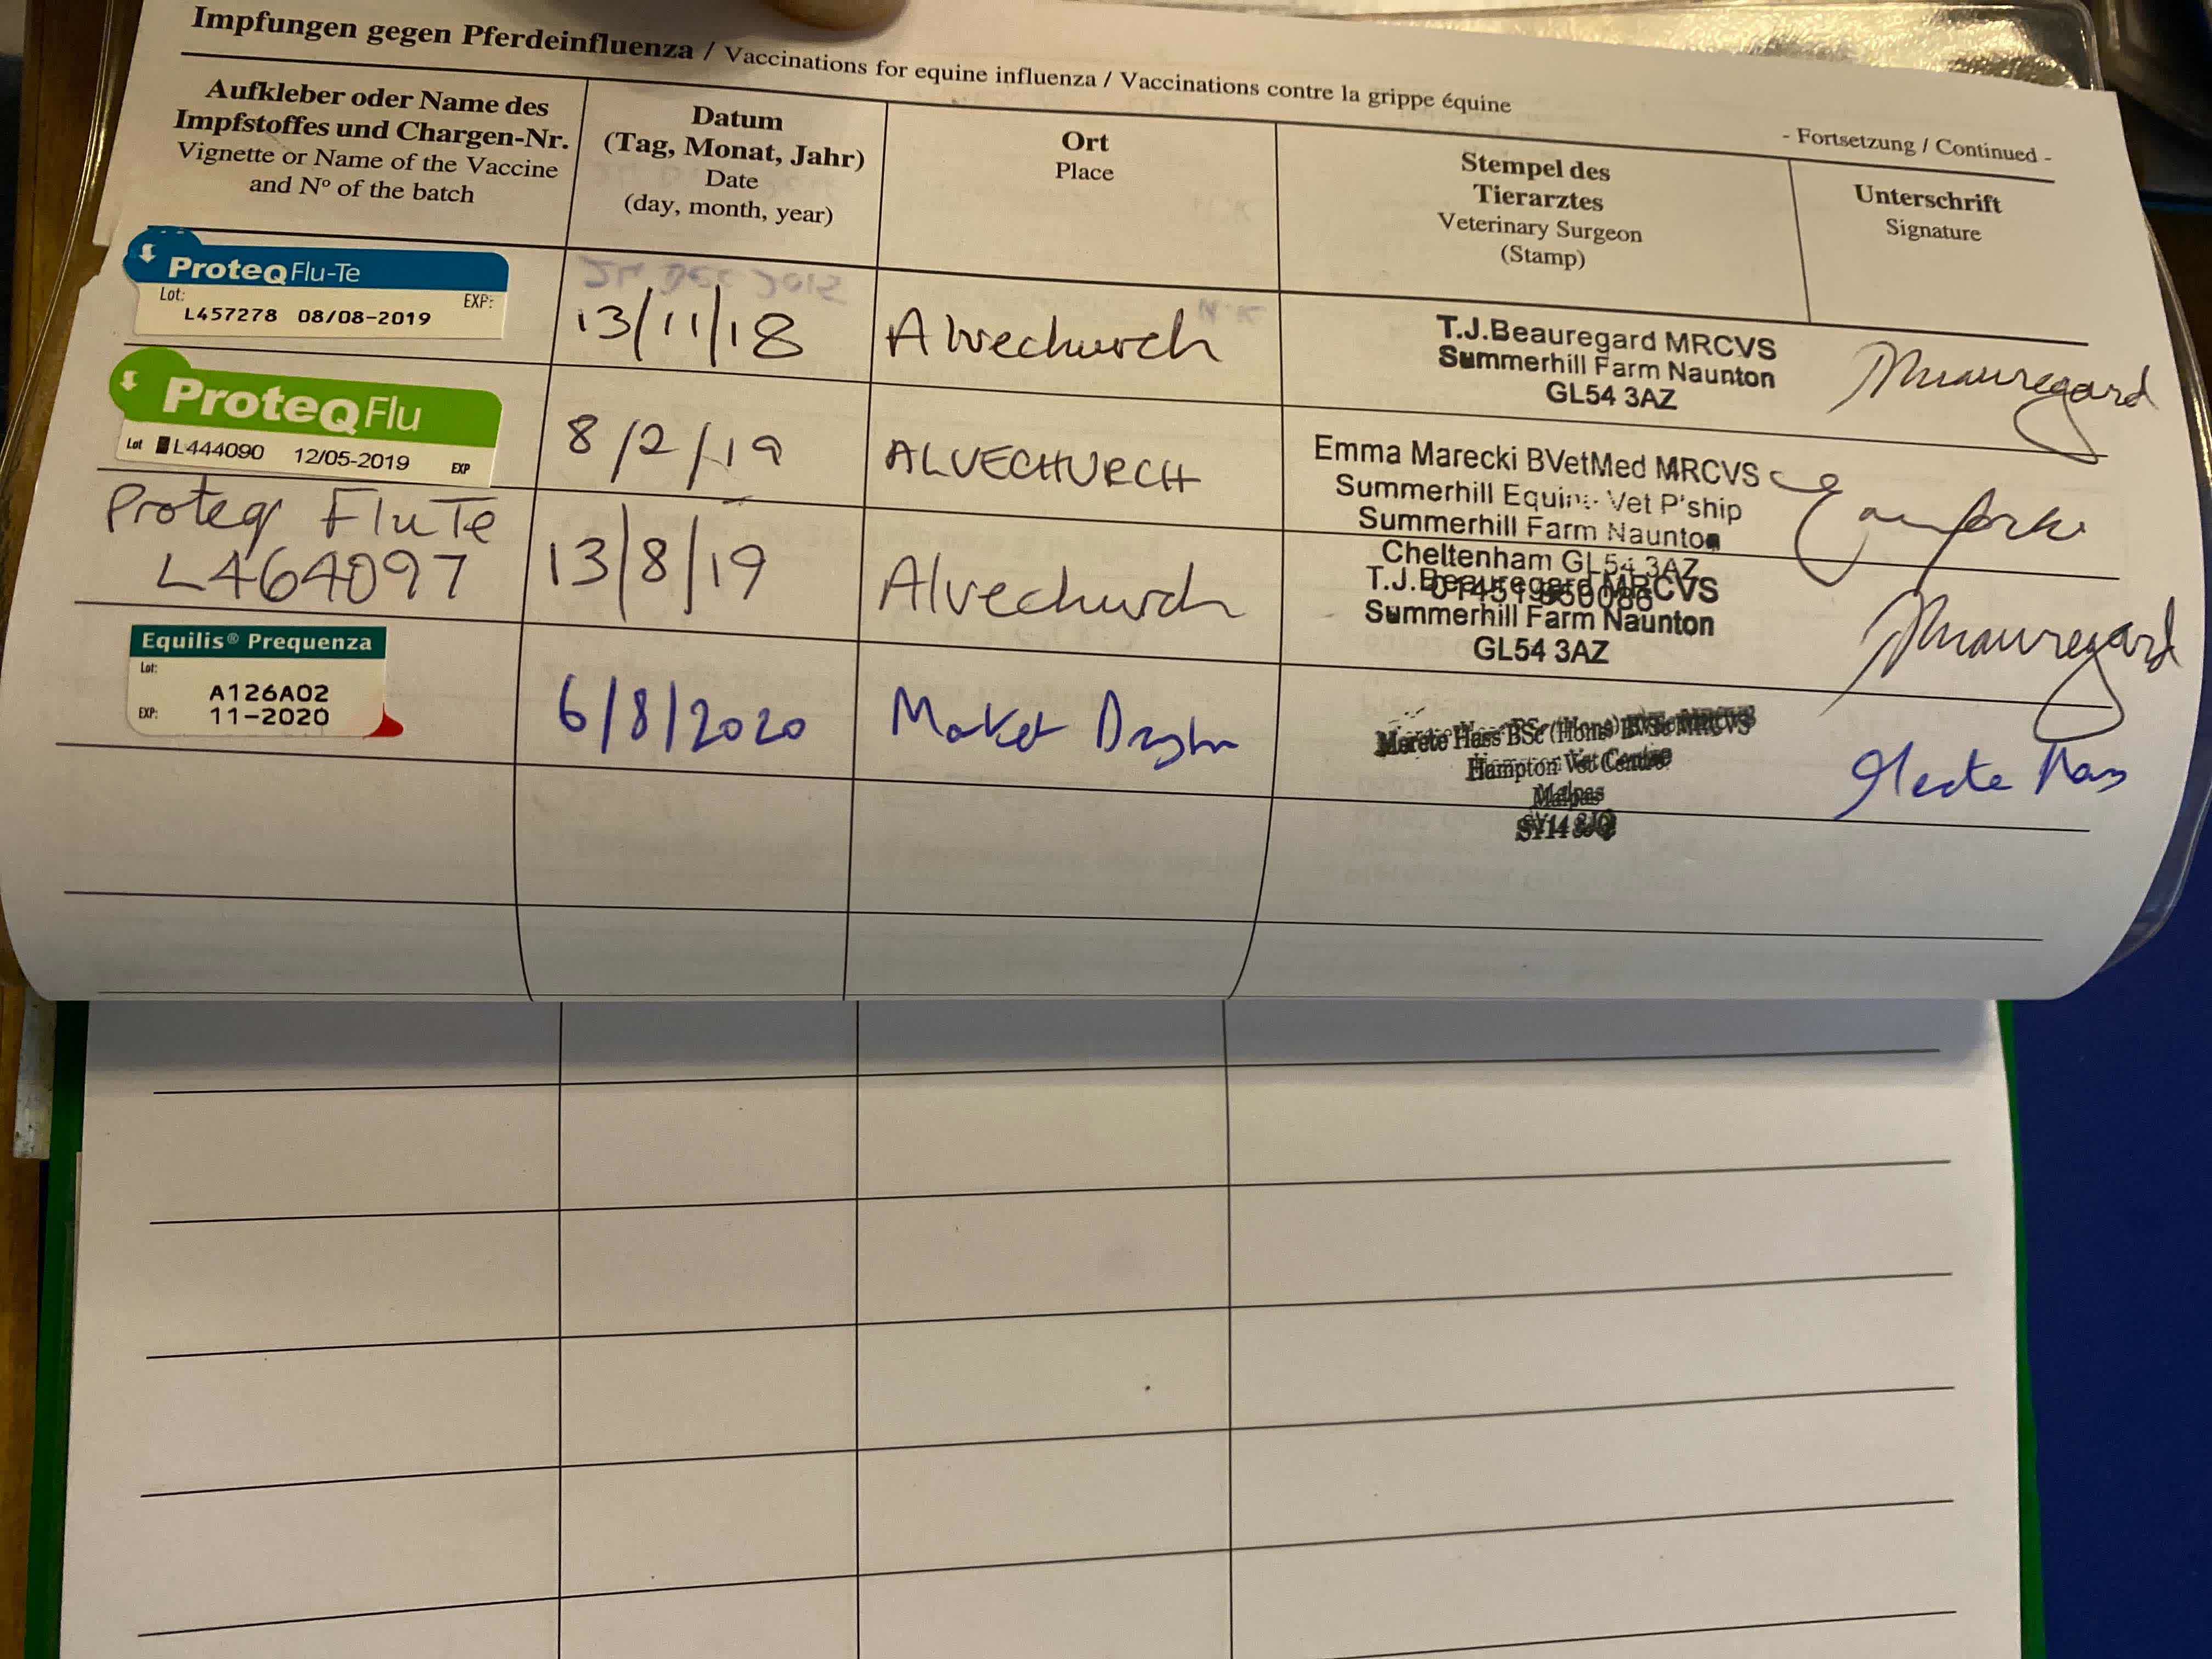 Impfungen gegen Pferdeinfluenza / Vaccinations for equine influenza / Vaccinations contre la grippe équine
- Fortsetzung / Continued -
Aufkleber oder Name des
Impfstoffes und Chargen-Nr.
Vignette or Name of the Vaccine
and Nº of the batch
Datum
(Tag, Monat, Jahr)
Date
(day, month, year)
Ort
Place
Stempel des
Tierarztes
Veterinary Surgeon
(Stamp)
Unterschrift
Signature
ProteqFlu-Te
Lot: EXP:
L457278 08/08-2019
13/11/18
Alvechurch
T.J.Beauregard MRCVS
Summerhill Farm Naunton
GL54 3AZ
ProteqFlu
Lot L444090 12/05-2019 EXP
8/2/19
ALVECHURCH
Emma Marecki BVetMed MRCVS
Summerhill Equine Vet P'ship
Summerhill Farm Naunton
Cheltenham GL54 3AZ
Proteq Flu Te
L464097
13/8/19
Alvechurch
T.J.Beauregard MRCVS
Summerhill Farm Naunton
GL54 3AZ
Equilis® Prequenza
Lot:
A126A02
EXP: 11-2020
6/8/2020
Market
Merete Hass BSc (Hons) BVSc MRCVS
Hampton Vet Centre
Malpas
SY14 8JQ